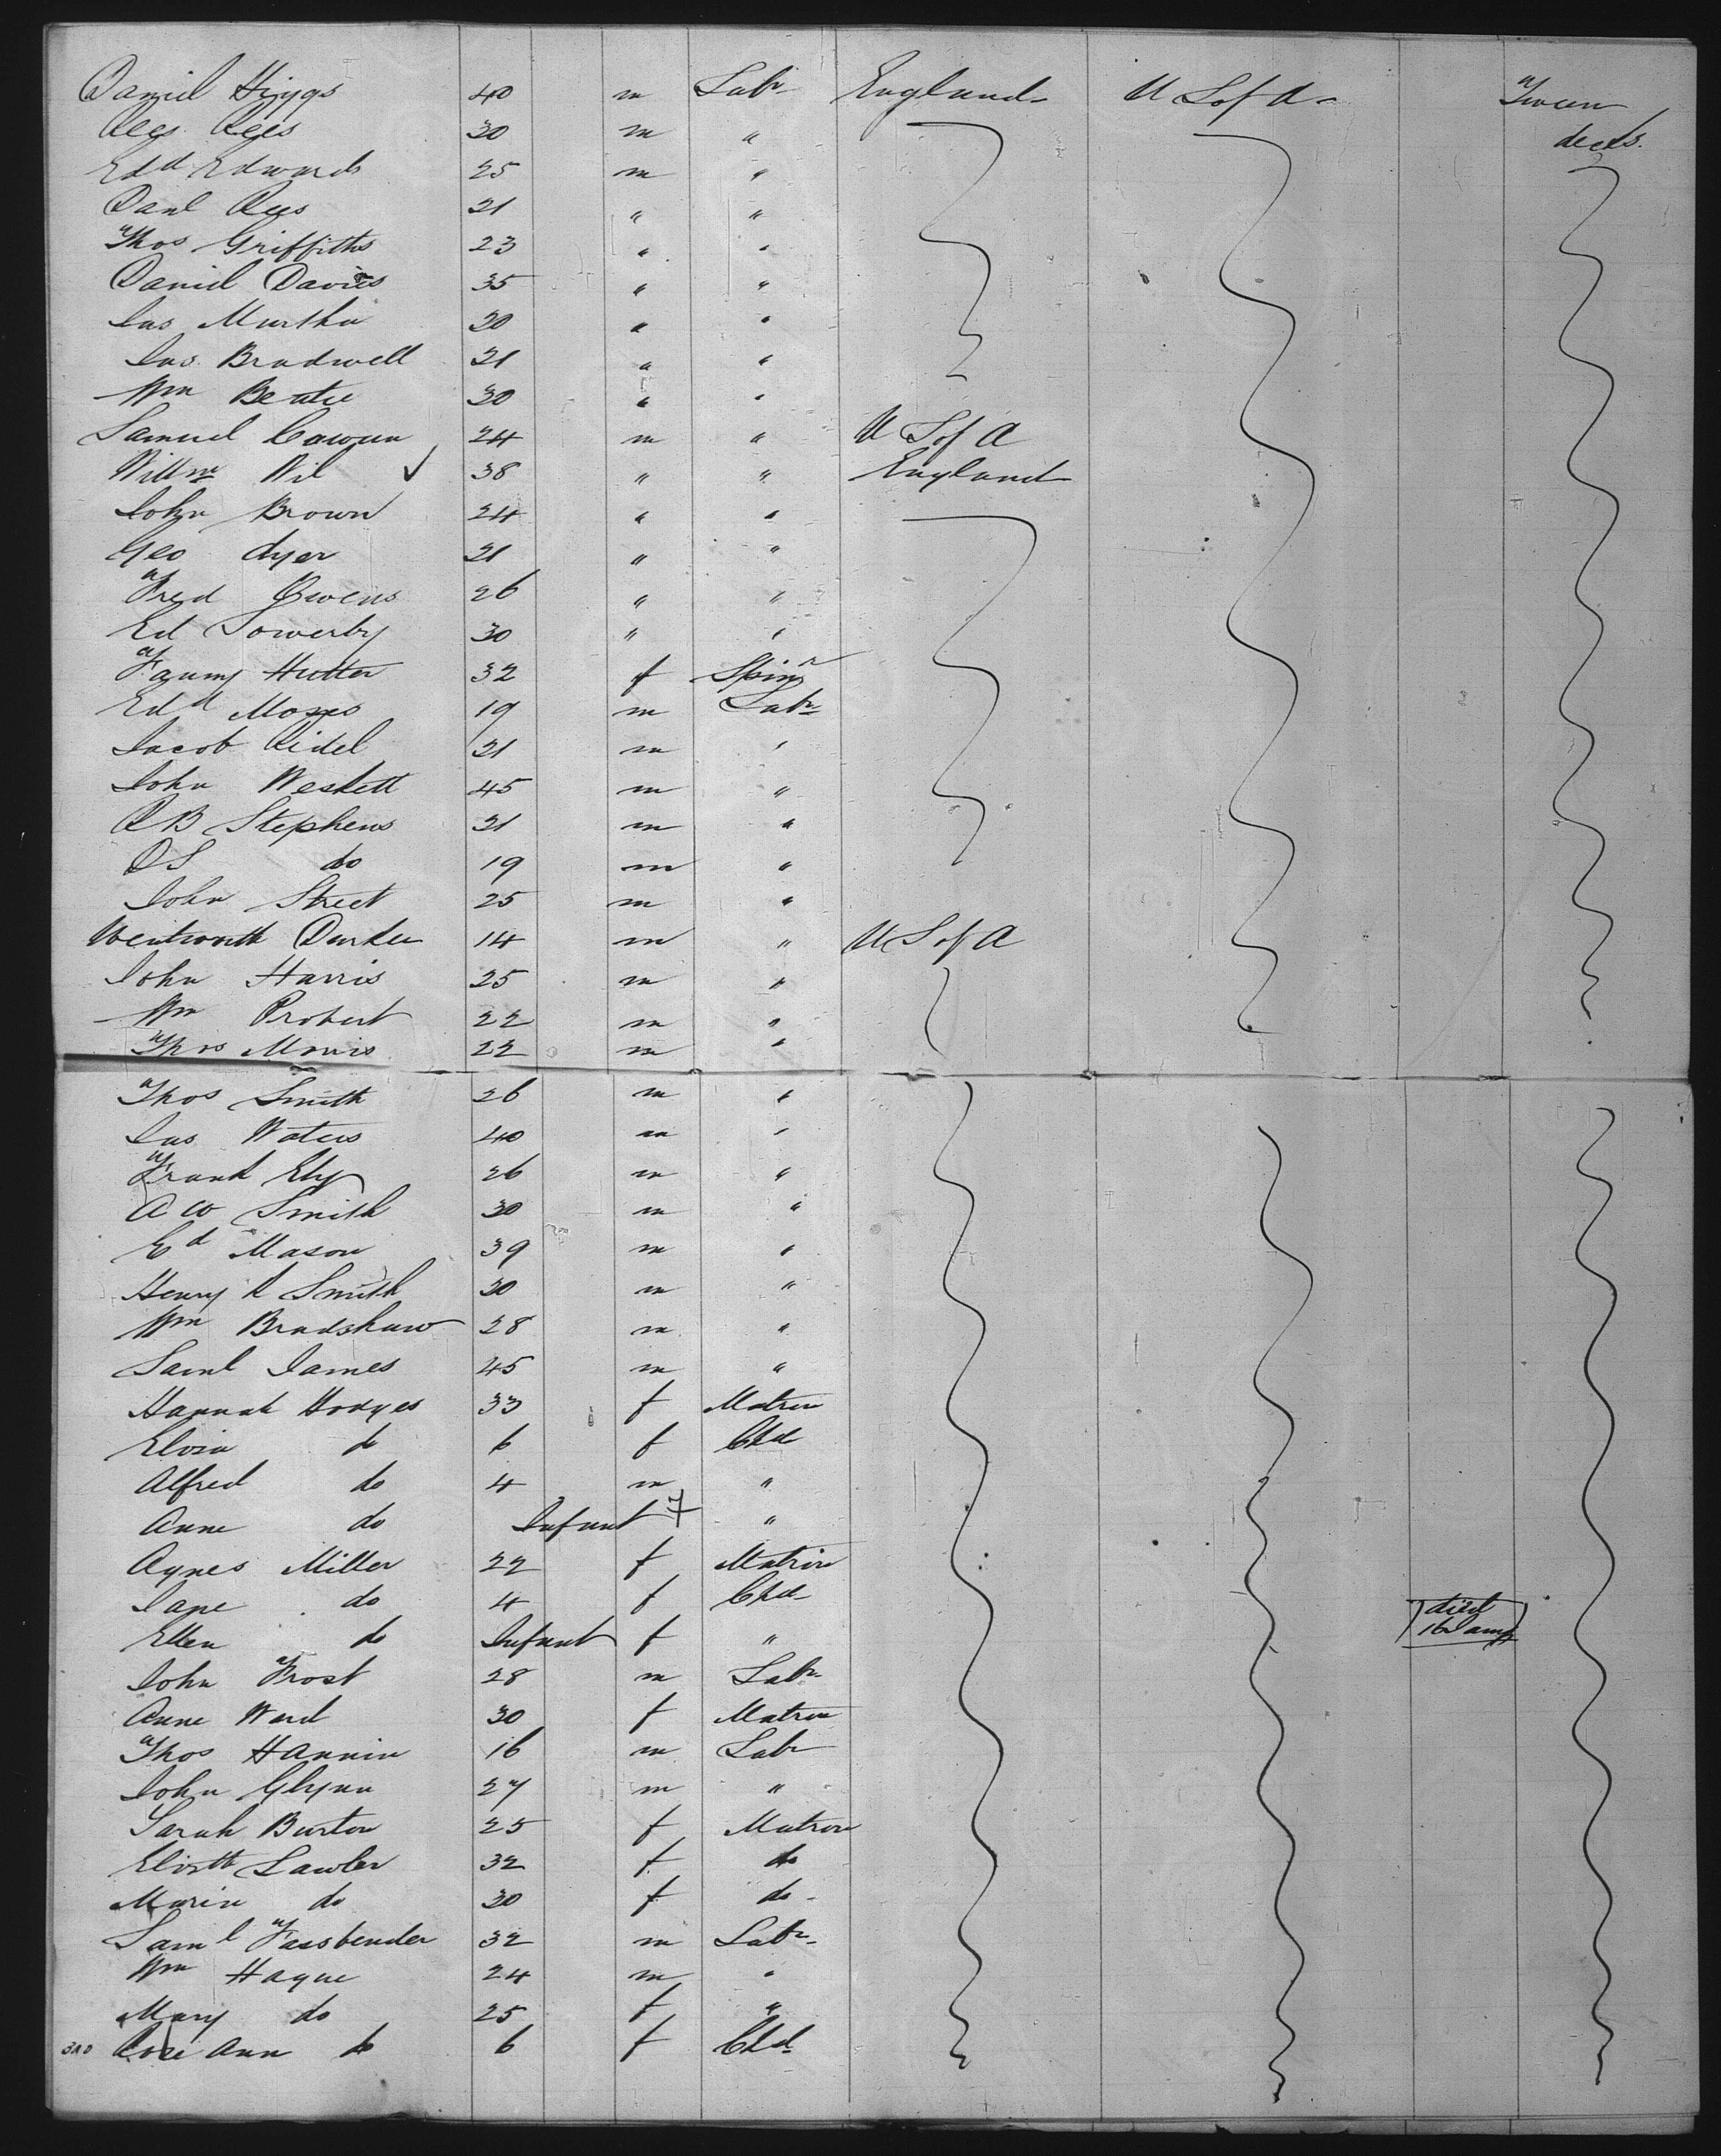 Daniel Higgs 40 m Labr England U S of A Tween
Rees Rees 30 m " decks.
Edd Edwards 25 m "
Danl Rees 21 " "
Thos Griffiths 23 " "
Daniel Davies 35 " "
Jas Murtha 20 " "
Jas. Bradwell 21 " "
Wm Beatie 30 " "
Samuel Cowan 24 m " U S of A
Willm Wil 38 " " England
John Brown 24 " "
Geo dyer 21 " "
Fred Owens 26 " "
Ed Sowerby 30 " "
Fanny Hutter 32 f Spinr
Edd Moses 19 m Labr
Jacob Ridel 21 m "
John Weskett 45 m "
R B Stephens 21 m "
D S do 19 m "
John Street 25 m "
Wentworth Durkee 14 m " U S of A
John Harris 25 m "
Wm Probert 22 m "
Thos Morris 22 m "
Thos Smith 26 m "
Jas Waters 40 m "
Frank Ely 26 m "
A W Smith 30 m "
Ed Mason 39 m "
Henry Smith 30 m "
Wm Bradshaw 28 m "
Saml James 45 m "
Hannah Hodges 33 f Matron
Elvin do 6 f Chd
Alfred do 4 m "
Anne do Infant f "
Agnes Miller 22 f Matron
Jane do 4 f Chd
Ellen do Infant f " died 16
John Frost 28 m Labr
Anne Ward 30 f Matron
Thos Hannin 16 m Labr
John Glynn 27 m "
Sarah Burton 25 f Matron
Elizth Lawler 32 f do
Maria do 30 f do
Saml Fassbender 32 m Labr
Wm Hague 24 m "
Mary do 25 f "
Rose Ann do 6 f Chd